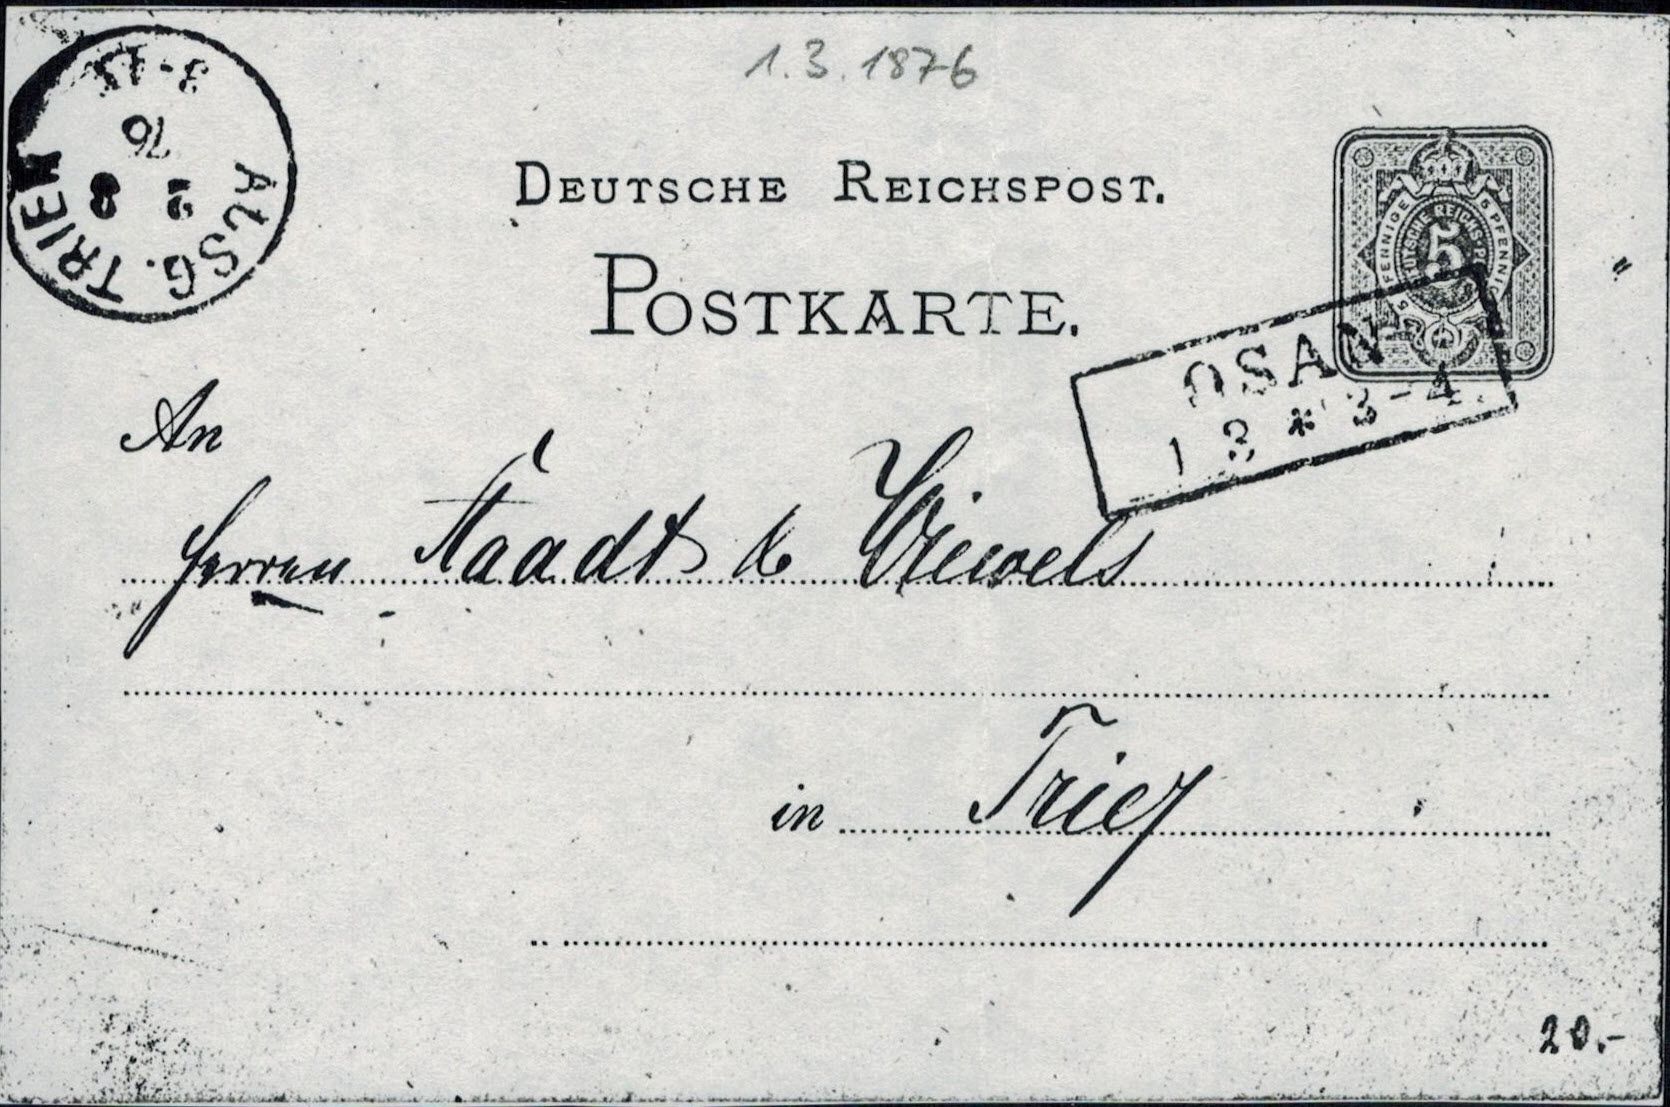 1.3.1876
AUSG. TRIER
76
DEUTSCHE REICHSPOST.
POSTKARTE.
5 PFENNIGE
DEUTSCHE REICHS-POST
5
OSANN
1 3 * 3-4.
An
Herren Staadt &
in Trier
20.-